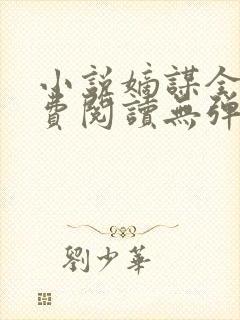 小說嫡謀全
費閱讀無彈
劉少華